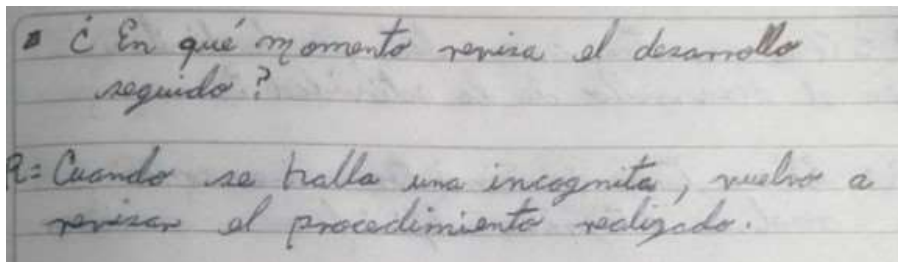 ▪ ¿ En qué momento revisa el desarrollo
seguido?
R= Cuando se halla una incognita, vuelvo a
revisar el procedimiento realizado.